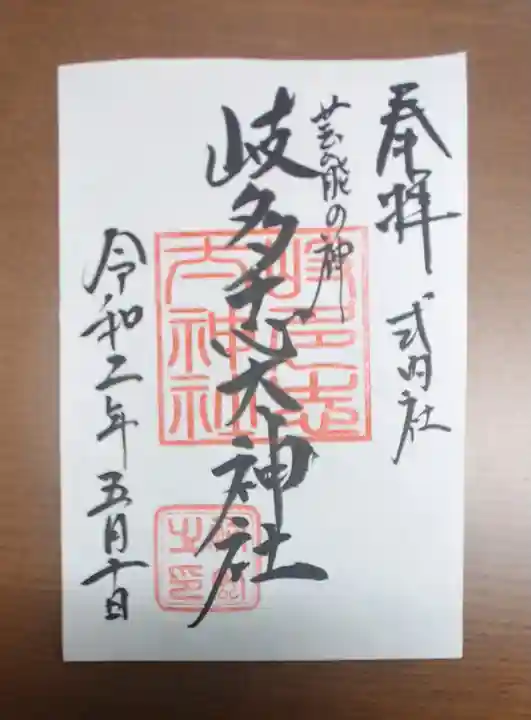 奉拝
式内社
芸能の神
岐多志太神社
令和二年五月十日
岐多志
太神社